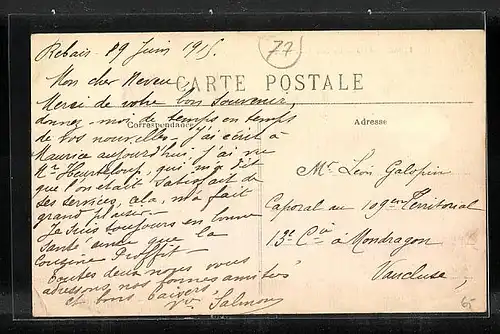 Rebais 19 Juin 1915.
77
Mon cher Neveu,
CARTE POSTALE
Merci de votre bon souvenir,
donnez-moi de temps en temps
Correspondance
Adresse
de vos nouvelles. J'ai écrit à
Maurice aujourd'hui. J'ai vu
Mr Heurteloup, qui m'a dit
que l'on était satisfait de
ses services, cela m'a fait
grand plaisir.
Je suis toujours en bonne
santé ainsi que la
cousine
Toutes deux nous vous
adressons nos bonnes amitiés
et bons baisers.
Vve Salmon
Mr. Léon Galopin
Caporal au 109e Territorial
13e Cie à Mondragon
Vaucluse,